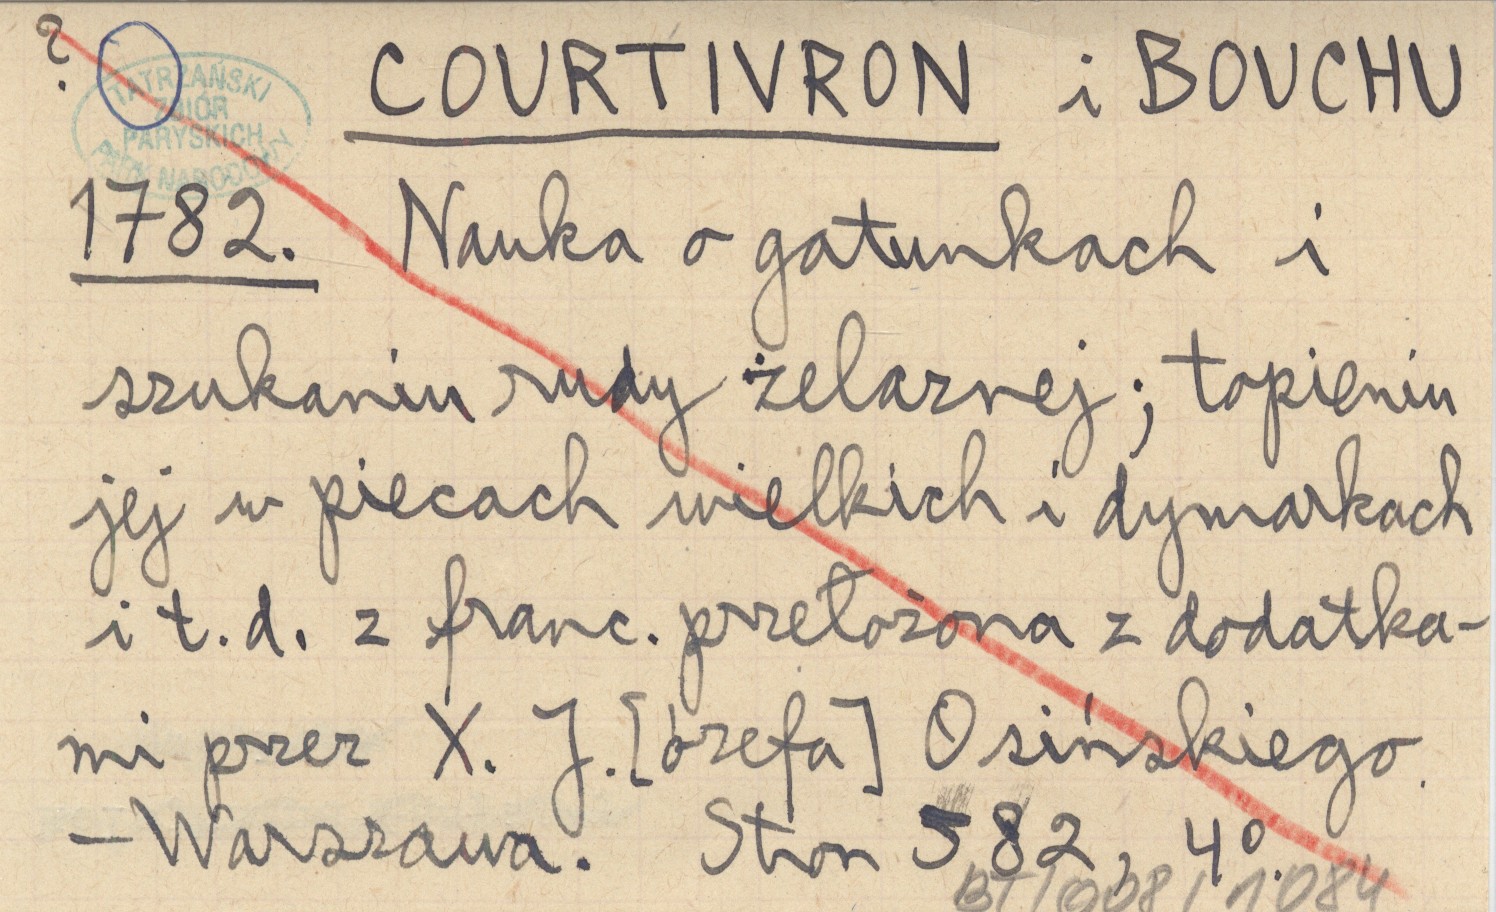 ?
COURTIVRON i BOUCHU
TATRZAŃSKI
ZBIÓR
PARYSKICH
PARK NARODOWY
1782. Nauka o gatunkach i
szukaniu rudy żelaznej; topieniu
jej w piecach wielkich i dymarkach
i t.d. z franc. przełożona z dodatka-
mi przez X. J.[ózefa] Osińskiego.
- Warszawa. Stron 582, 4º.
BT/008/1084